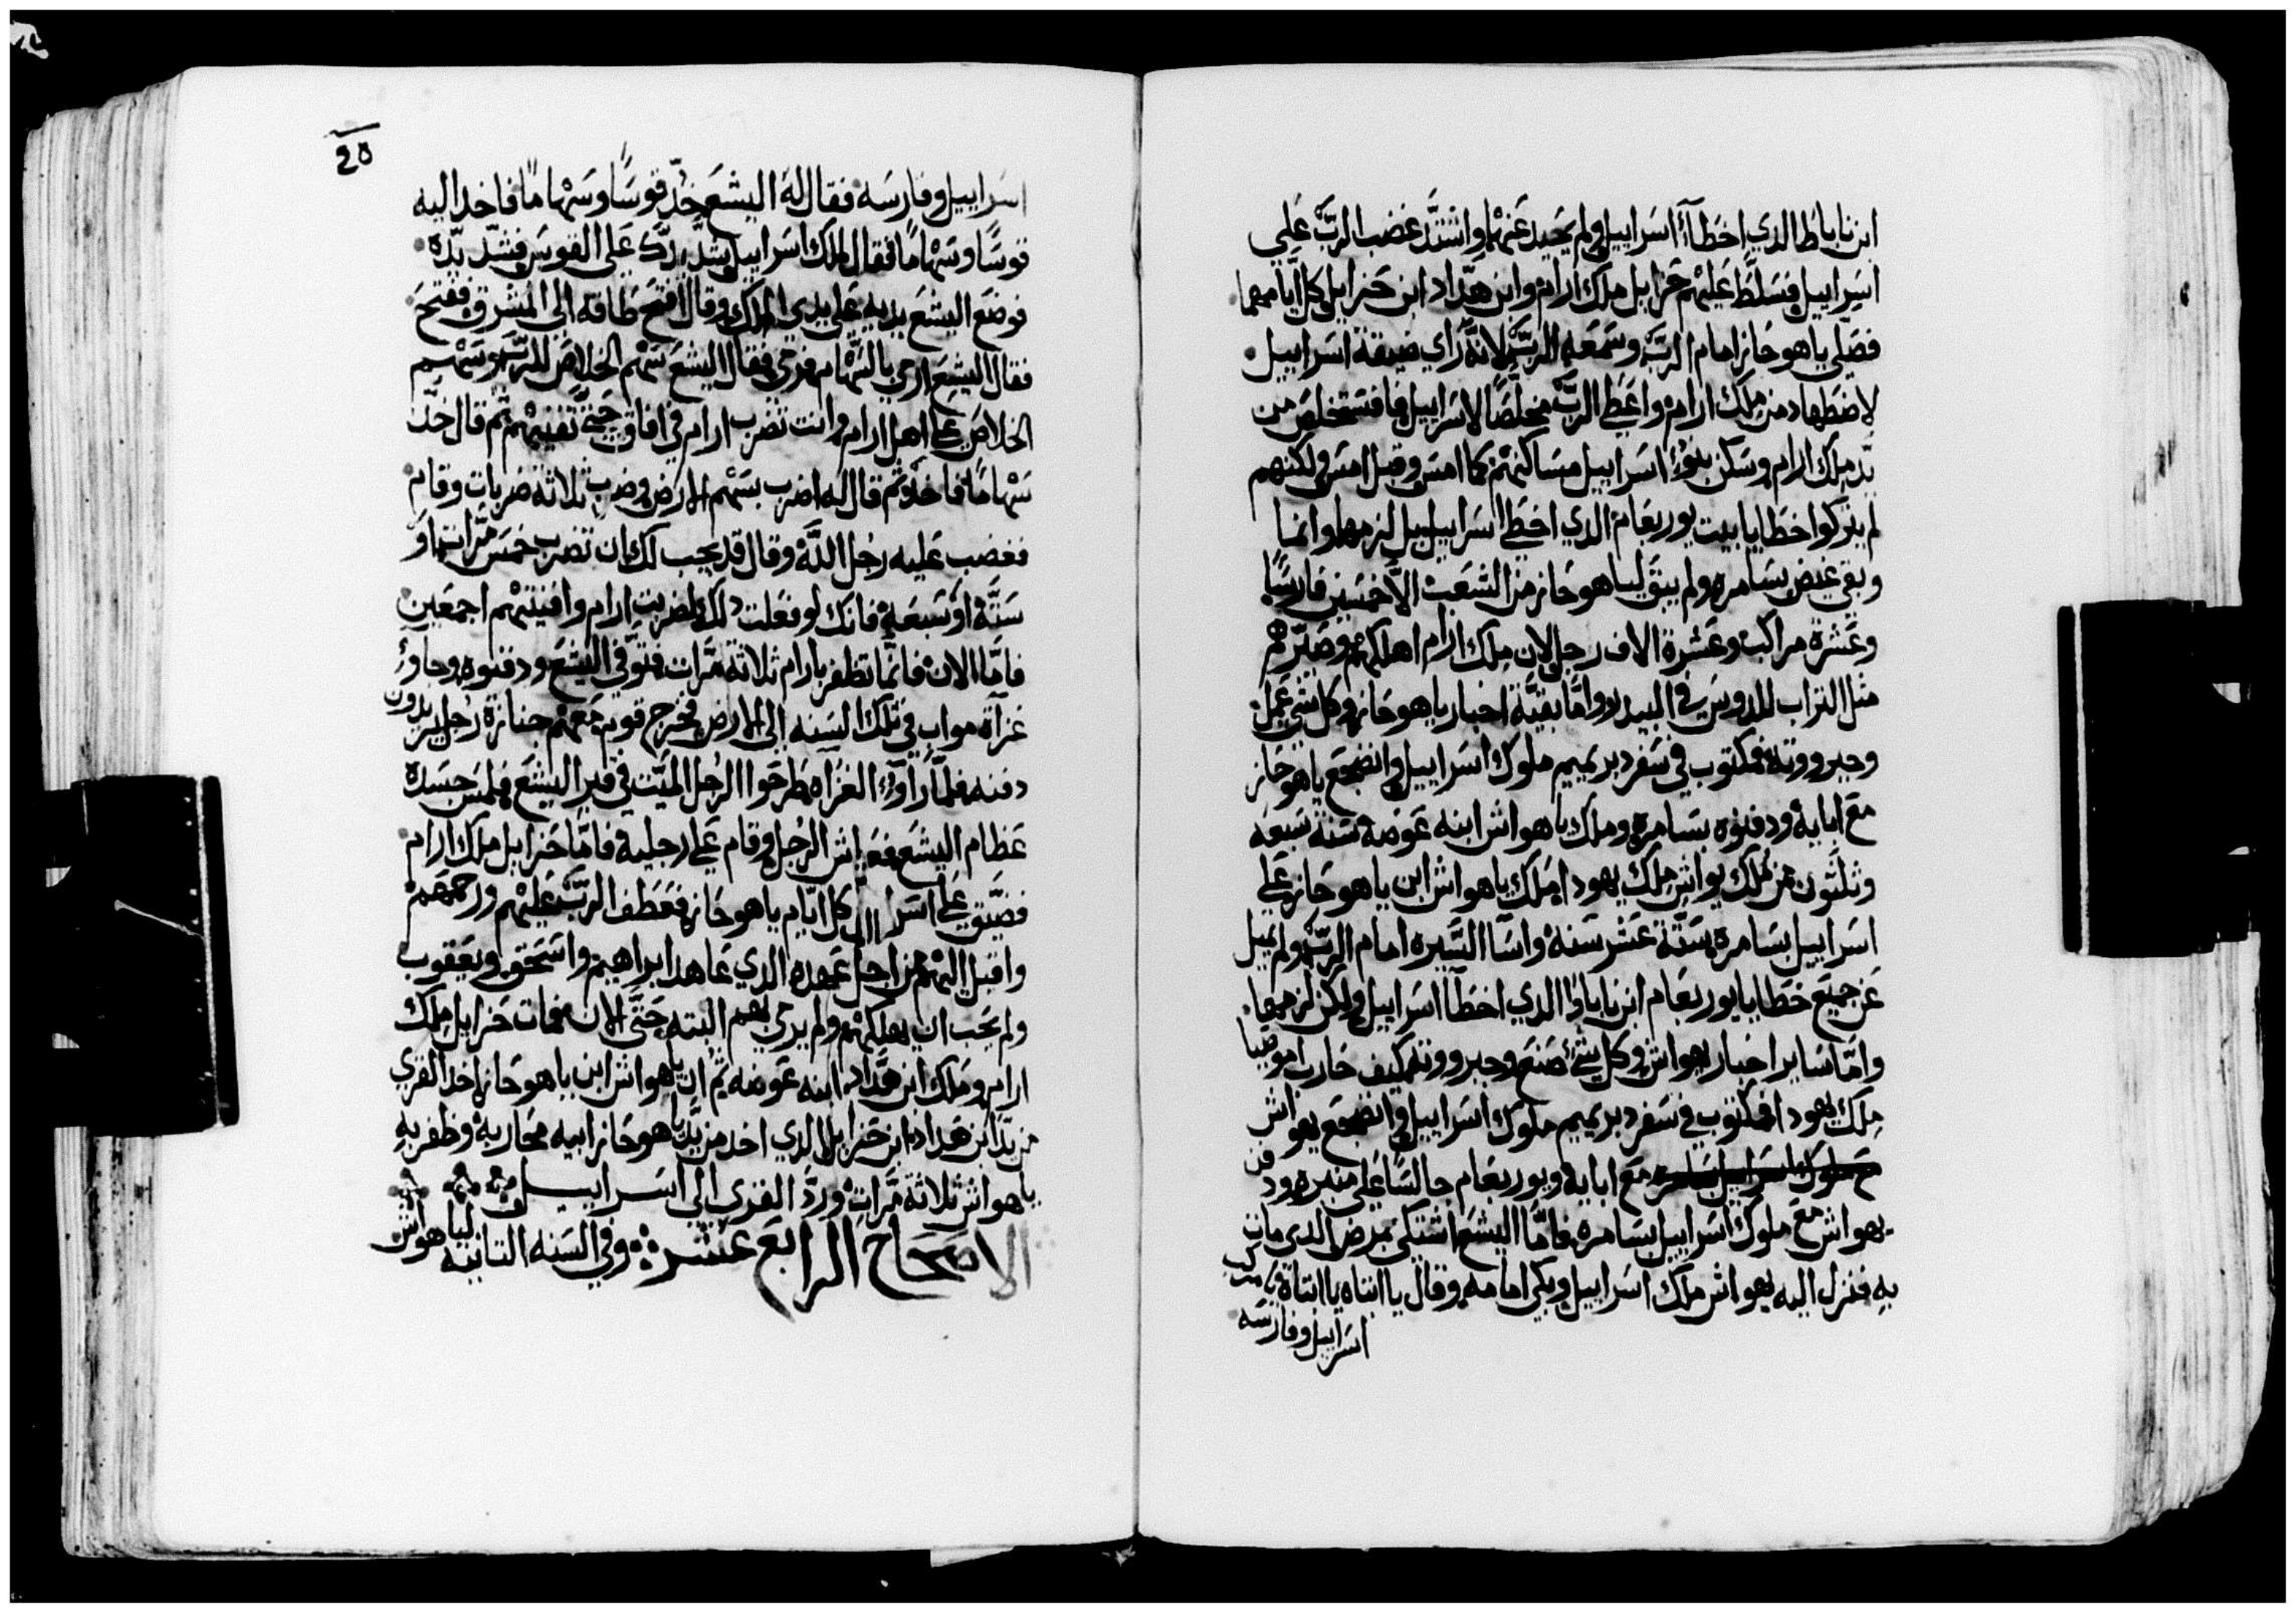 ابن ناباط الدي اخطاا اسراييل ولم يحيد عنهم واشتد غضب الرب علي
اسراييل فسلط عليهم حزايل ملك ارام وابن هداد ابن حزايل كل ايامهما
فصلي ياهوحاز امام الرب وسمعه الرب لانه راي ضيقة اسراييل
لاضطهاد من ملك ارام واعطي الرب مخلصا لاسراييل فاستخلص من
يد ملك ارام وسكن بنوا اسراييل مساكنهم كما امس وقبل امس ولكنهم
لم يتركوا خطايا بيت يوربعام الدي اخطي اسراييل بل لزمها وانما
وبقي غيض بسامره ولم يبق لياهوحاز من الشعب الا خمسين فارسا
وعشرة مراكب وعشرة الاف رجل لان ملك ارام اهلكهم وصيرهم
مثل التراب المدوس في البيدر واما بقية اخبار ياهوحاز وكل شي عمل
وجبرووته فمكتوب في سفر دبريميم ملوك اسراييل وانضجع ياهوحاز
مع ابايه ودفنوه بسامره وملك ياهواش ابنه عوضه سنة سبعه
وثلثون من ملك يواش ملك يهودا ملك ياهواش ابن ياهوحاز علي
اسراييل بسامره ستة عشر سنه واسا السيره امام الرب ولم يميل
عن جميع خطايا يوربعام ابن ناباط الدي اخطا اسراييل ولكن لزمها
واما ساير اخبار يهواش وكل شي صنع وجبرووته كيف حارب اموصيا
ملك يهودا فمكتوب في سفر دبريميم ملوك اسراييل وانضجع يهواش
مع ملوك اسراييل بسامره مع ابايه ويوربعام جالسا علي منبره ودفن
يهواش مع ملوك اسراييل بسامره فاما اليشع اشتكي بمرض الدي مات
به فنزل اليه يهواش ملك اسراييل وبكي امامه وقال يا ابتاه يا ابتاه يا مركب
اسراييل وفارسه
20
اسراييل وفارسه فقال له اليشع خد قوسا وسهاما فاخد اليه
قوسا وسهاما فقال لملك اسراييل شد يدك علي القوس فشد يده
فوضع اليشع يديه علي يدي الملك وقال افتح طاقه الي المشرق ففتح
فقال اليشع ارمي بالسهام فرمي فقال اليشع سهم الخلاص للرب وسهم
الخلاص علي اهل ارام وانت تضرب ارام في افاق حتي تفنيهم ثم قال خد
سهاما فاخد ثم قال له اضرب بسهم الارض فضرب ثلاثة ضربات وقام
فغضب عليه رجل الله وقال قد يجب لك ان تضرب خمس مرات او
ستة او سبعة فانك لو فعلت دلك لضربت ارام وافنيتهم اجمعين
فاما الان فانما تظفر بارام ثلاثة مرات فتوفي اليشع ودفنوه وجاوا
غزاة مواب في تلك السنه الي الارض فخرج قوم معهم جنازة رجل يريدون
دفنه فلما راوا الغزاه طرحوا الرجل الميت في قبر اليشع فلمس جسده
عظام اليشع فعاش الرجل وقام علي رجليه فاما حزايل ملك ارام
فضيق علي اسراييل كل ايام ياهوحاز فعطف الرب عليهم ورحمهم
واقبل اليهم من اجل عهده الدي عاهد ابراهيم واسحق ويعقوب
ولم يحب ان يهلكهم ولم يرمي بهم البته حتي الان فمات حزايل ملك
ارام وملك ابن هداد ابنه عوضه ثم ان ياهواش ابن ياهوحاز اخد القري
من يد ابن هداد ابن حزايل الدي اخد من يد ياهوحاز ابيه محاربه وظفر به
ياهواش ثلاثة مرات ورد القري الي اسراييل
الاصحاح الرابع عشر وفي السنه التانيه لياهواش